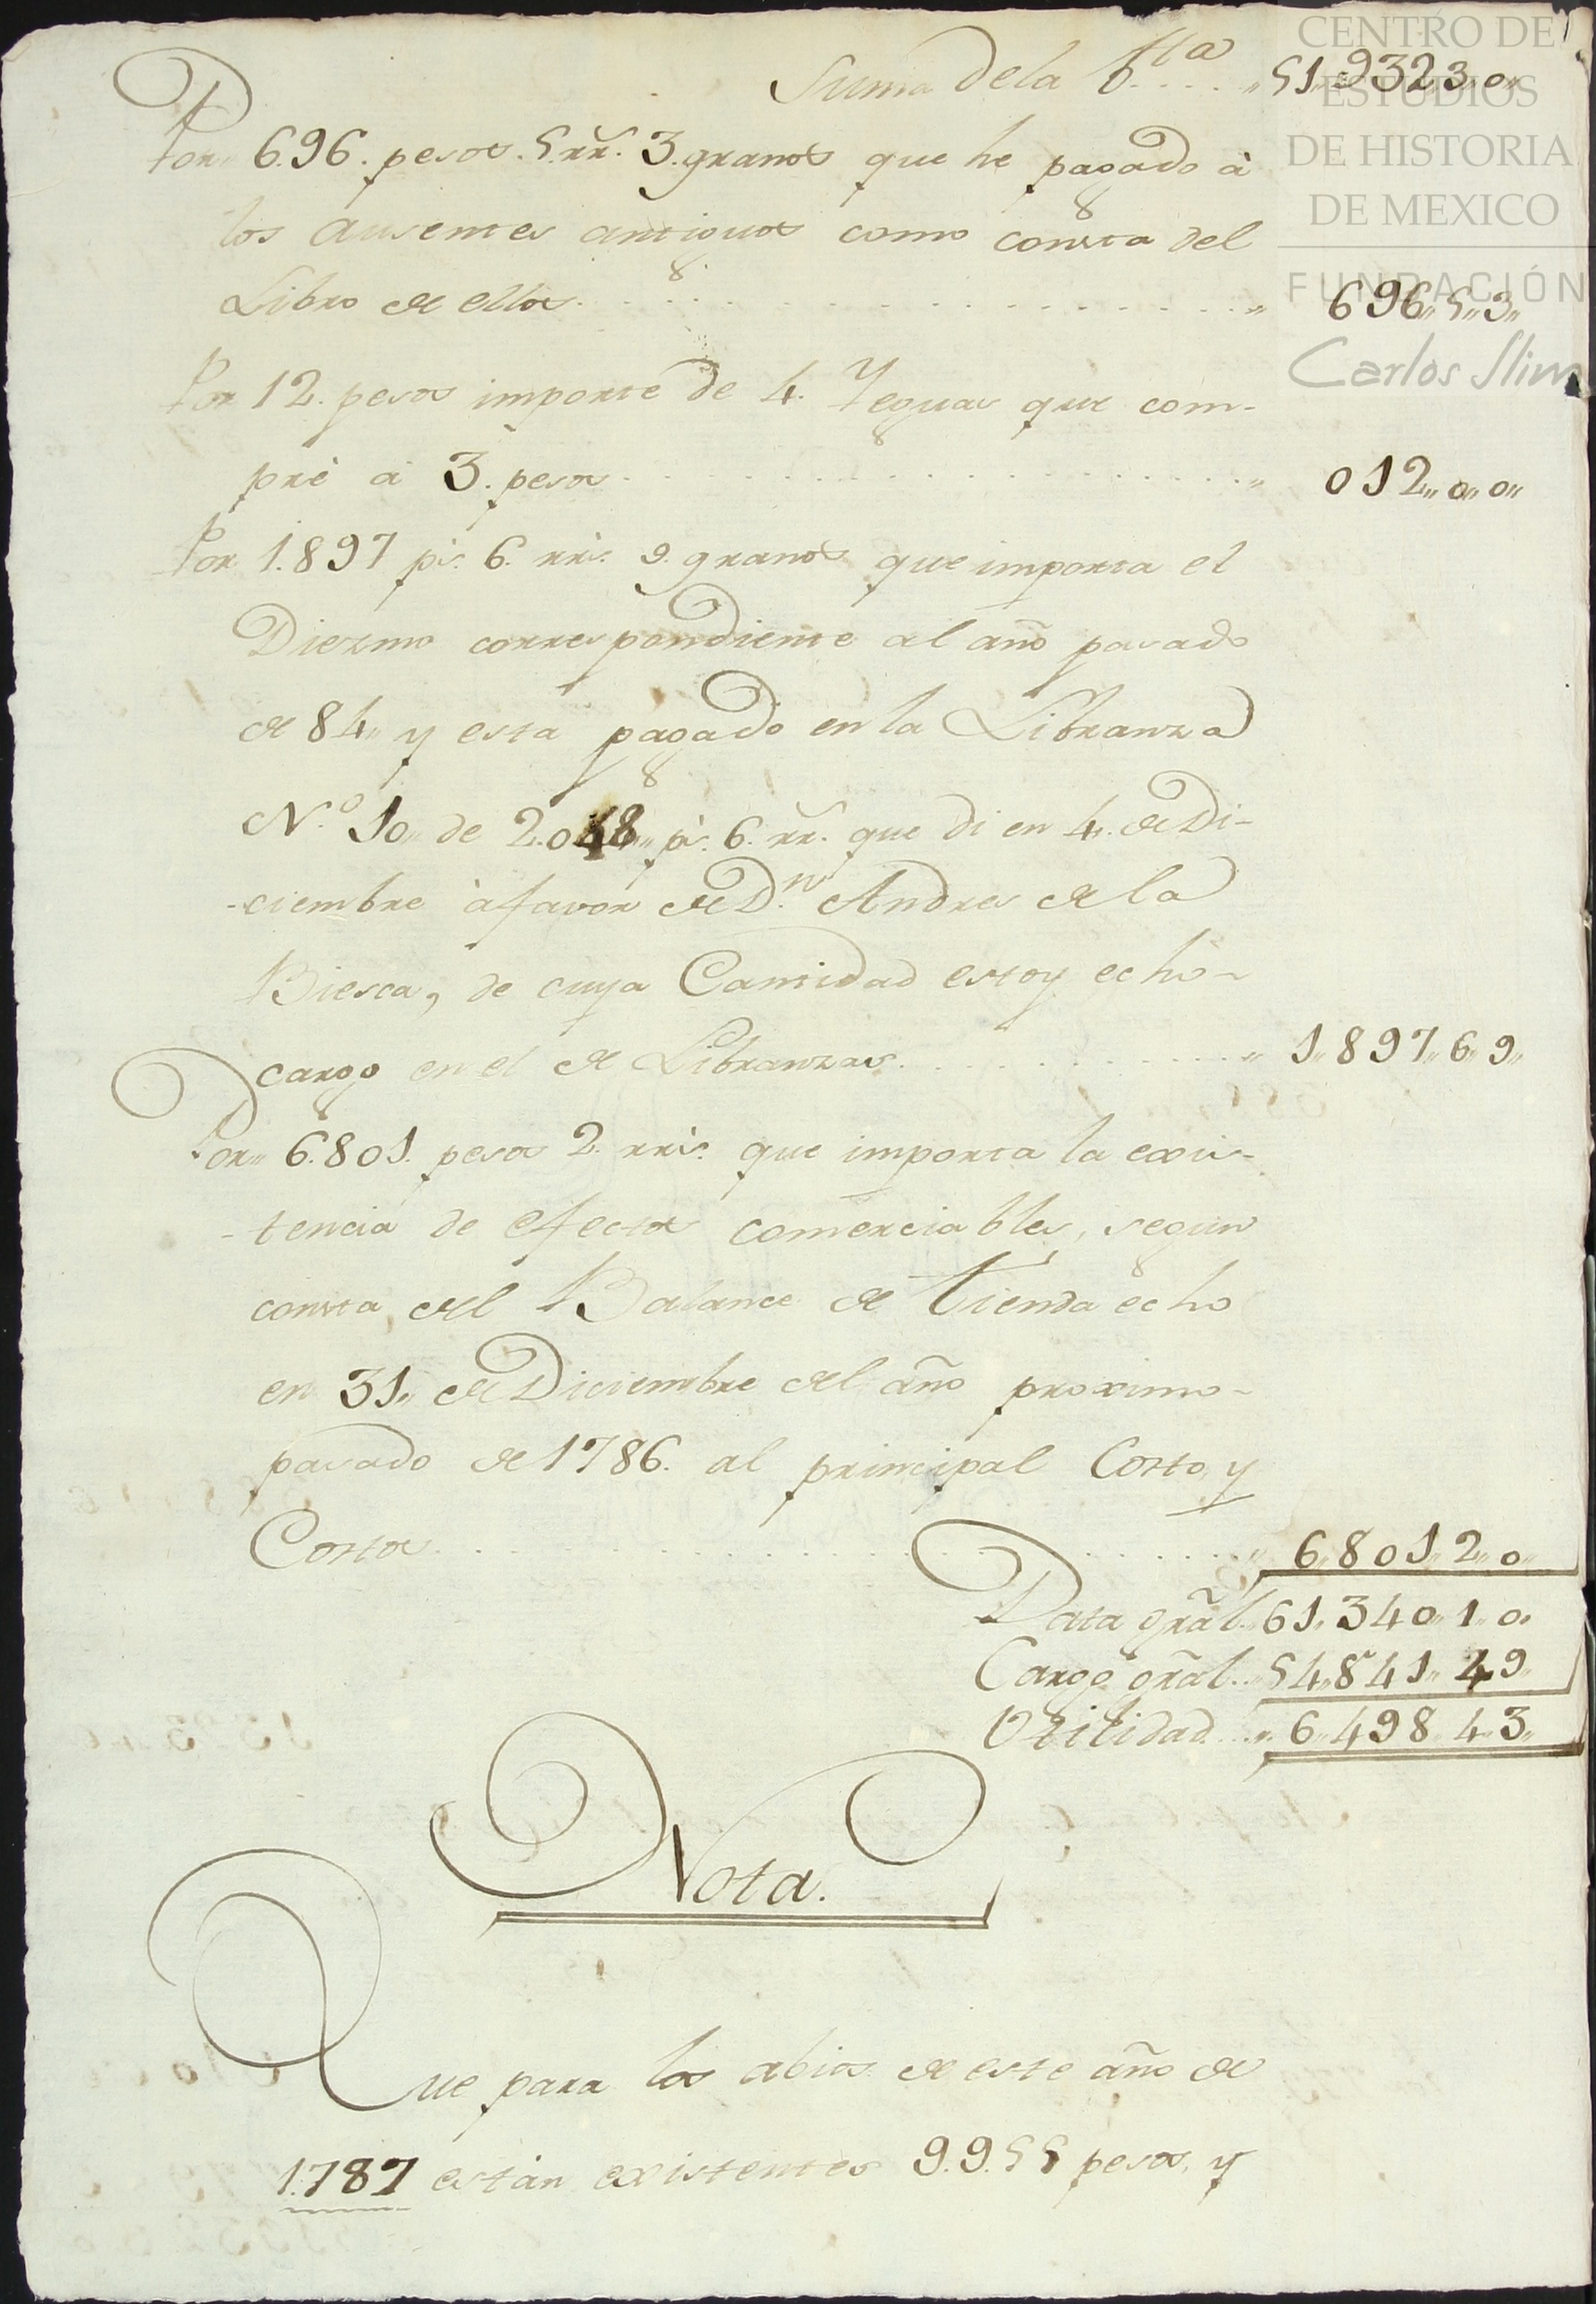 Suma de la b.ta .... „ 51„932„3„0„
Por„ 6.96. pesos. 5. rr̃. 3. granos que he pagado à
los ausentes antiguos como consta del
Libro de ellos. . . . . „ 696„5„3„
Por 12. pesos importe de 4. Yeguas que com-
pré a 3. pesos . . . . . „ 012„0„0„
Por 1.897 p.s 6. rr.s 9. granos que importa el
Diezmo correspondiente al año pasado
de 84„ y esta pagado en la Libranza
N.o 10„ de 2.048„ p.s 6. rr̃. que di en 4„ de Di-
-ciembre à favor de D.n Andres de la
Biesca, de cuya Cantidad estoy echo-
cargo en el de Libranzas. . . . . „ 1„897„6„9„
Por„ 6.801. pesos 2. rr.s que importa la exis-
-tencia de efectos comerciables, segun
consta del Balance de tienda echo
en 31„ de Diciembre del año proximo-
pasado de 1786. al principal Costo, y
Costos . . . . . „ 6„801„2„0„
Data gr̃al. „ 61„340„1„0„
Cargo gr̃al. .. „ 54„841„4„9„
Vtilidad .... „ 6„498„4„3„
Nota.
Que para los abios de este año de
1.787 están existentes 9.955 pesos, y
CENTRO DE
ESTUDIOS
DE HISTORIA
DE MEXICO
FUNDACIÓN
Carlos Slim